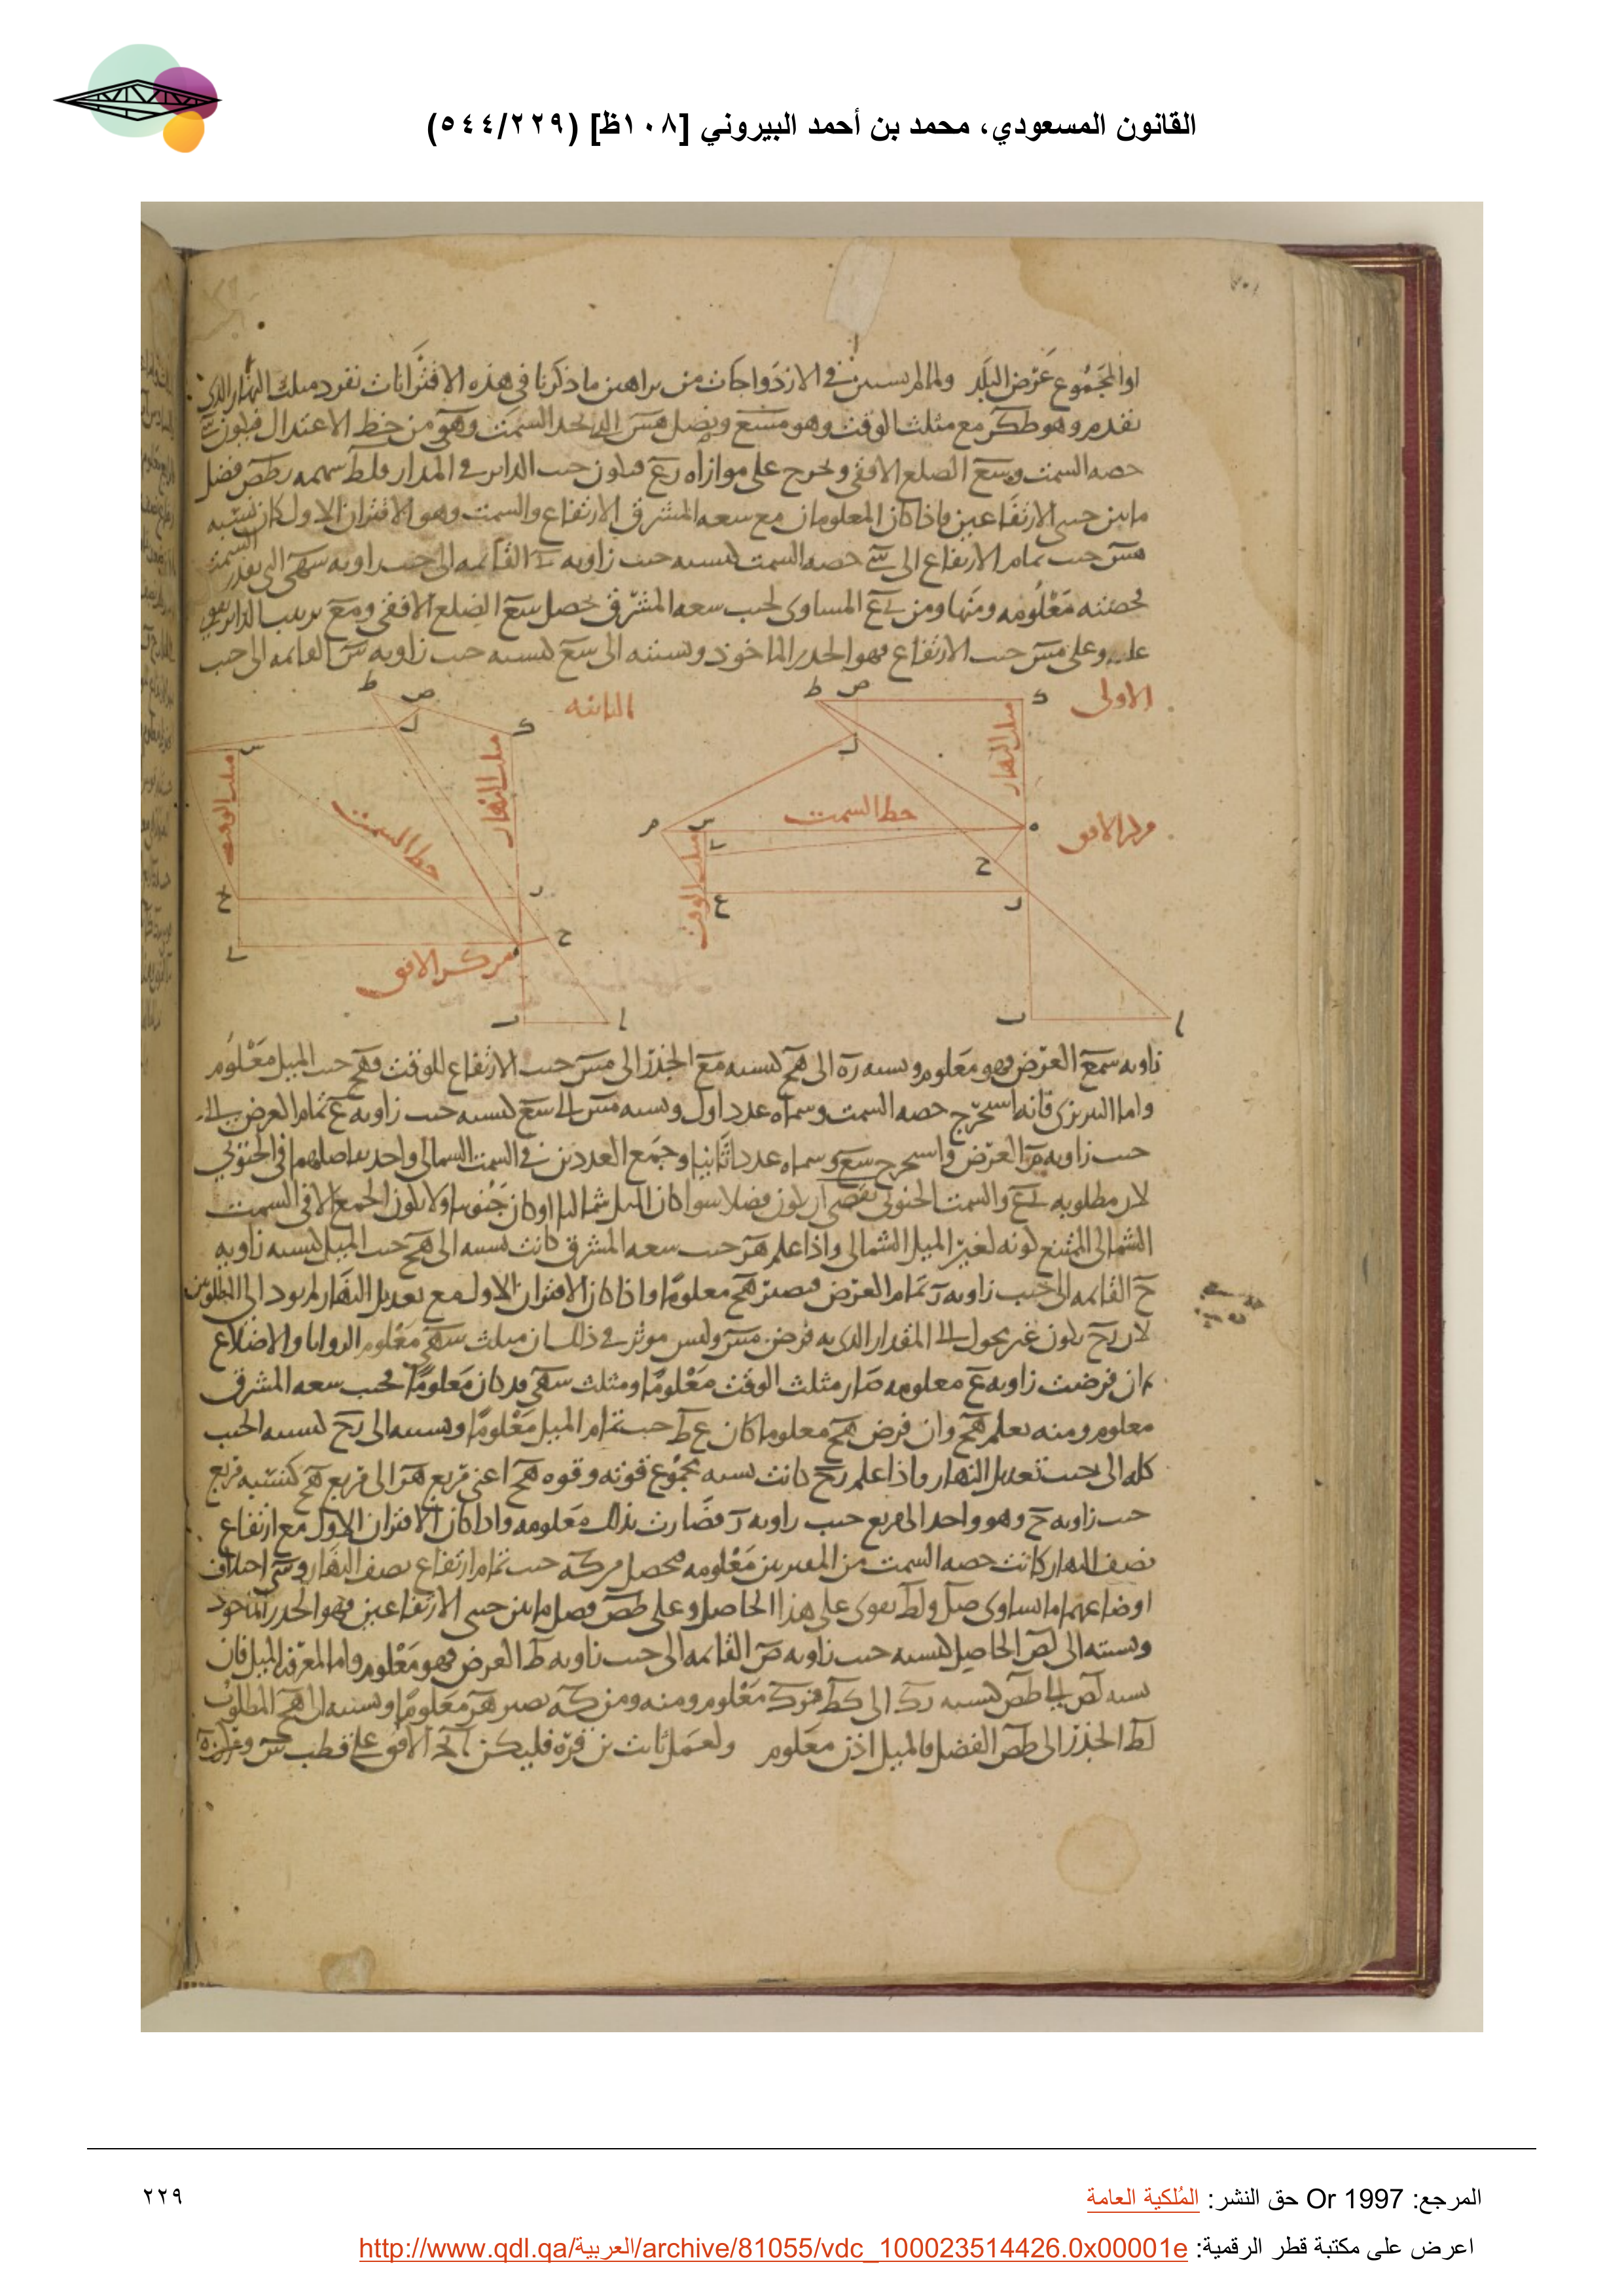 القانون المسعودي، محمد بن أحمد البيروني [١٠٨ظ] (٥٤٤/٢٢٩)
او المجموع عرض البلد ولما لم يستبن في الازدواجات من براهين ما ذكرنا في هذه الاقترانات نفرد مثلث النهار الذى
تقدم وهو طكر مع مثلث الوقت وهو مسع ونصل هس الى لحد السمت وهى من خط الاعتدال فيكون سى
حصه السمت وسع الضلع الافقى ونخرج على موازاه رع فيكون جيب الداير في المدار ولط سهمه وطص فضل
ما بين جيبى الارتفاعين فاذا كان المعلومان مع سعه المشرق الارتفاع والسمت وهو الاقتران الاول كان نسبه
هس جيب تمام الارتفاع الى سى حصه السمت كنسبه جيب زاويه ى القائمه الى جيب زاويه سهى التى بقدر السمت
فحصته معلومه ومنها ومن ىع المساوى لجيب سعه المشرق يحصل سع الضلع الافقى ومع
عليه وعلى مس جيب الارتفاع فهو الجذر الماخوذ ونسبته الى سع كنسبه جيب زاويه س القائمه الى جيب
الاولى
ط ص ك
مثلث النهار
ل
خط السمت
م س ه
مركز الافق
ى
ح
مثلث الوقت
ع ر
ب ا
الثانيه
ط ص
ل ك
س
مثلث النهار
مثلث الوقت
خط السمت
ع ر
ى ح
مركز الافق
ب ا
زاويه سمع العرض فهو معلوم ونسبه ره الى هح كنسبه مع الجذر الى مس جيب الارتفاع للوقت فهح جيب الميل معلوم
واما النيريزى فانه استخرج حصه السمت وسماه عددا اول ونسبه مس الى سع كنسبه جيب زاويه ع تمام العرض الى
جيب زاويه م العرض واستخرج سع وسماه عددا ثانيا وجمع العددين في السمت الشمالى واخذ تفاضلهما في الجنوبى
لان مطلوبه ىع والسمت الجنوبى يقتضى ان يكون فضلا سوا كان الميل شماليا او كان جنوبيا ولا يكون الجمع الا في السمت
الشمالى الممتنع كونه لغير الميل الشمالى واذا علم هر جيب سعه المشرق كانت نسبته الى هح جيب الميل كنسبه زاويه
ح القائمه الى جيب زاويه ر تمام العرض فيصير هح معلوما واذا كان الاقتران الاول مع تعديل النهار لم يود الى المطلوبين
لان رح يكون غير محول الى المقدار الذى به فرض مس وليس موثر في ذلك ان مثلث سهى معلوم الزوايا والاضلاع
فان فرضت زاويه ع معلومه صار مثلث الوقت معلوما ومثلث سهى قد كان معلوما فجيب سعه المشرق
معلوم ومنه يعلم هح وان فرض هح معلوما كان ع ط جيب تمام الميل معلوما ونسبته الى رح كنسبه الجيب
كله الى جيب تعديل النهار واذا علم رح كانت نسبه مجموع قوته وقوه هح اعنى مربع هر الى مربع هح كنسبه مربع
جيب زاويه ح وهو واحد الى مربع جيب زاويه ر فصارت بذلك معلومه واذا كان الاقتران الاول مع ارتفاع
نصف النهار كانت حصه السمت من معلومه فحصل من كه جيب تمام ارتفاع نصف النهار وسى اختلاف
اوضاعهما ما يساوى صل ولط يقوى على هذا الحاصل وعلى طص فضل ما بين جيبى الارتفاعين فهو الجذر الماخوذ
ونسبته الى لص الحاصل كنسبه جيب زاويه ص القائمه الى جيب زاويه ط العرض فهو معلوم واما لمعرفه الميل فان
نسبه لص الى طص كنسبه رك الى كط فرك معلوم ومنه ومن كه يصير هر معلوما ونسبته الى هح المطلوب
لط الجذر الى طص الفضل فالميل اذن معلوم ولعمل ثابت بن قره فليكن الافق على قطب
المرجع: Or 1997 حق النشر: المُلكية العامة
٢٢٩
اعرض على مكتبة قطر الرقمية: http://www.qdl.qa/العربية/archive/81055/vdc_100023514426.0x00001e